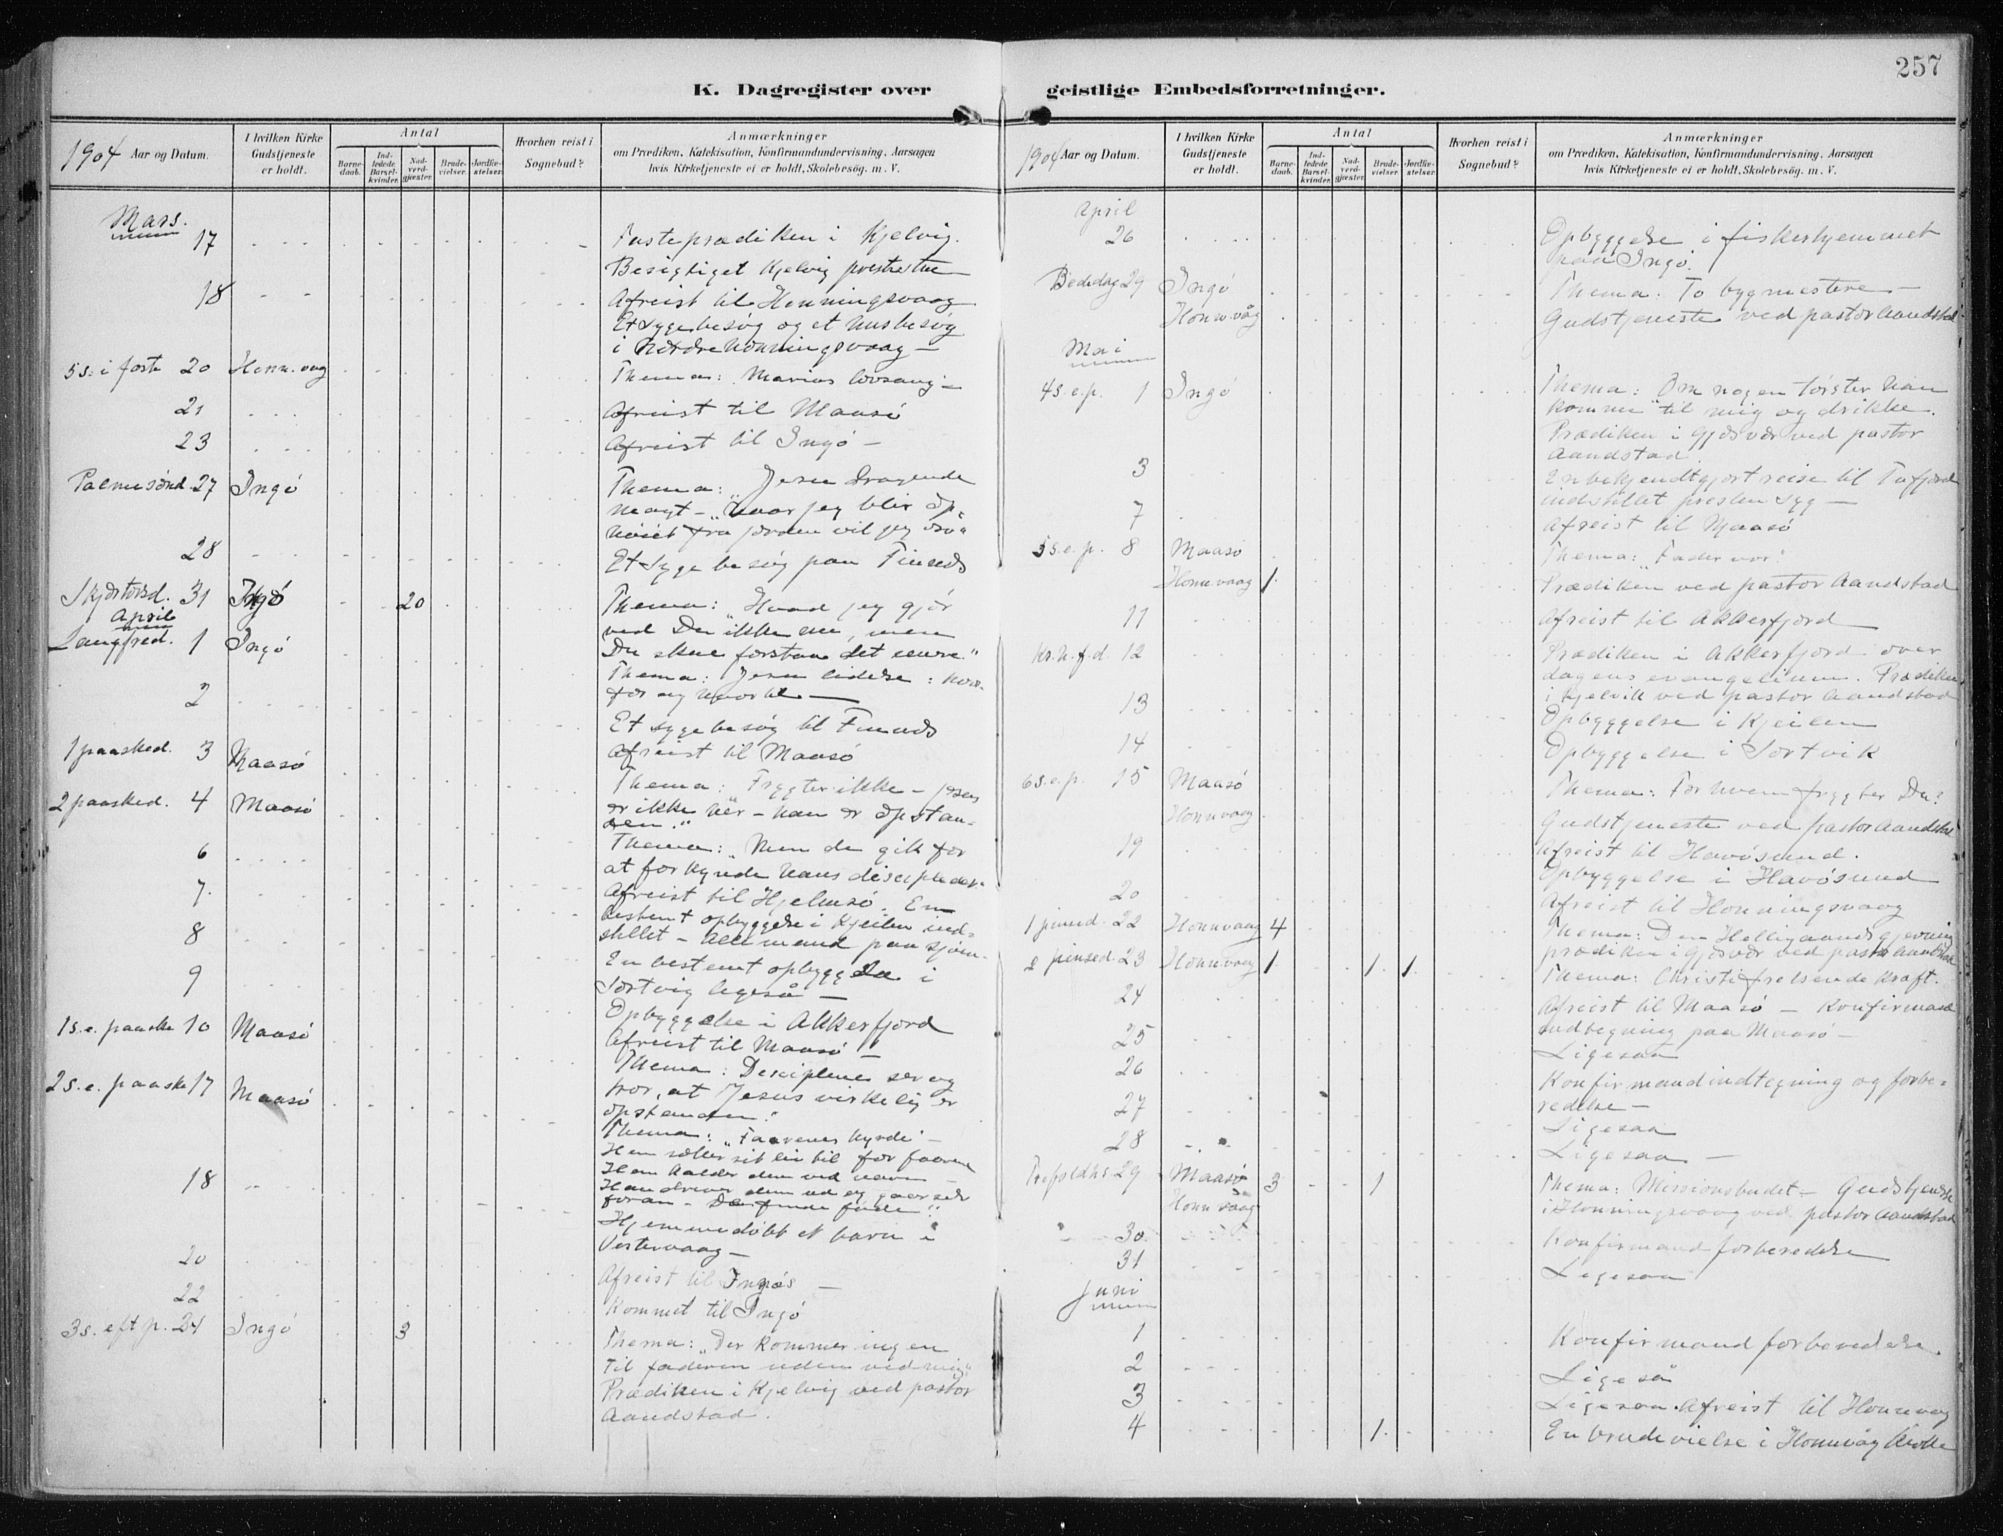 257
K. Dagregister over
1904 Aar og Datum.
I hvilken Kirke Gudstjeneste er holdt.
Antal
Barne-daab.
Ind-ledede Barsel-kvinder.
Nad-verd-gjæster.
Brude-vielser.
Jordfæ-stelser.
Hvorhen reist i Sognebud?
Anmærkninger
om Prædiken, Katekisation, Konfirmandundervisning, Aarsagen
hvis Kirketjeneste ei er holdt, Skolebesøg. m. V.
Mars.
17 Fasteprædiken i Kjelvig.
Besigtiget Kjelvig
18 Afreist til Honningsvaag
Et sygebesøg og et husbesøg
i Nordre Honningsvaag –
5 s. i faste 20 Honn.vaag Thema: Marias lovsang –
21 Afreist til Maasö
23 Afreist til Ingö –
Palmesönd. 27 Ingö Thema: „Jesu dragende
magt – „Naar jeg blir op-
höiet fra jorden vil jeg
28 Et sygebesøg paa
Skjærtorsd. 31 Ingö 20 Thema: „Hvad jeg gjör
April
ved Du ikke nu, men
Langfred. 1 Ingö Du skal forstaa det
Thema: Jesu lidelse: hvor-
for og hvortil –
2 Et sygebesøg til
Afreist til Maasö
1 paasked. 3 Maasö Thema: „Frygter ikke – Jesus
er ikke her – han er opstan-
den."
2 paasked. 4 Maasö Thema: „Men de gik for
at forkynde hans disciple det"
6 Afreist til Hjelmsö. En
7. bestemt opbyggelse i Kjeilen ind-
stillet – alle mand paa sjöen.
8 En bestemt opbyggelse i
Sortvig ligesaa –
9 Opbyggelse i Akkerfjord
Afreist til Maasö –
1 s. e. paaske 10 Maasö Thema: Disciplenes
tror, at Jesus virkelig er
opstanden.
2 s. e. paaske 17 Maasö Thema: „Faarenes hyrde" –
Han sætter sit liv til for faarene
Han kalder dem ved navn –
Han driver dem ud og gaar selv
foran –
18 Hjemmedöbt et barn i
Vestervaag –
20 Afreist til Ingö –
22 Kommet til Ingö
3 s. eft p. 24 Ingö 3 Thema: „Der kommer ingen
til faderen uden ved mig"
Prædiken i Kjelvig ved pastor
Aandstad.
geistlige Embedsforretninger.
1904 Aar og Datum.
I hvilken Kirke Gudstjeneste er holdt.
Antal
Barne-daab.
Ind-ledede Barsel-kvinder.
Nad-verd-gjæster.
Brude-vielser.
Jordfæ-stelser.
Hvorhen reist i Sognebud?
Anmærkninger
om Prædiken, Katekisation, Konfirmandundervisning, Aarsagen
hvis Kirketjeneste ei er holdt, Skolebesøg. m. V.
April
26 Opbyggelse i fiskerhjemmet
paa Ingö.
Bededag 29 Ingö Thema: To bygmestere –
Honn.våg Gudstjeneste ved pastor Aandstad
Mai
4 s. e. p. 1 Ingö Thema: Om nogen törster han
komme til mig og drikke.
Prædiken i Gjæsvær ved pastor
Aandstad.
3 En bekjendtgjort reise til Tufjord
indstillet presten syg –
7 Afreist til Maasö
5 s. e. p. 8 Maasö Thema: „Fader vor"
Honn.vaag 1 Prædiken ved pastor Aandstad
11 Afreist til Akkerfjord
Kr. h. f. d. 12 Prædiken i Akkerfjord over
dagens evangelium. Prædiken
i Kjelvik ved pastor Aandstad
13 Opbyggelse i Kjeilen
14 Opbyggelse i Sortvik
6 s. e. p. 15 Maasö Thema: For hvem frygter Du?
Honnvaag Gudstjeneste ved pastor Aandstad
19 Afreist til Havösund.
Opbyggelse i Havösund
20 Afreist til Honningsvaag
1 pinsed. 22 Honnvaag 4 Thema: Den Helligaands gjerning
prædiken i gjæsvær ved pastor Aandstad
2 pinsed. 23 Honn.vaag 1 1 1 Thema: Christi frelsende kraft.
24 Afreist til Maasö – Konfirmand
indtegning paa Maasö –
25 Ligesaa
26 Konfirmandindtegning og forbe-
redelse –
27 Ligesaa
28 Ligesaa –
Trefoldhs. 29 Maasö 3 1 Thema: Missionsbudet – Gudstjeneste
Honnvaag i Honningsvaag ved pastor Aandstad
30. Konfirmandforberedelse
31 Ligesaa
Juni
1 Konfirmandforberedelse.
2 Ligeså
3 Ligesaa. Afreist til Honnvaag
4 1. En brudevielse i Honnvåg Kirke